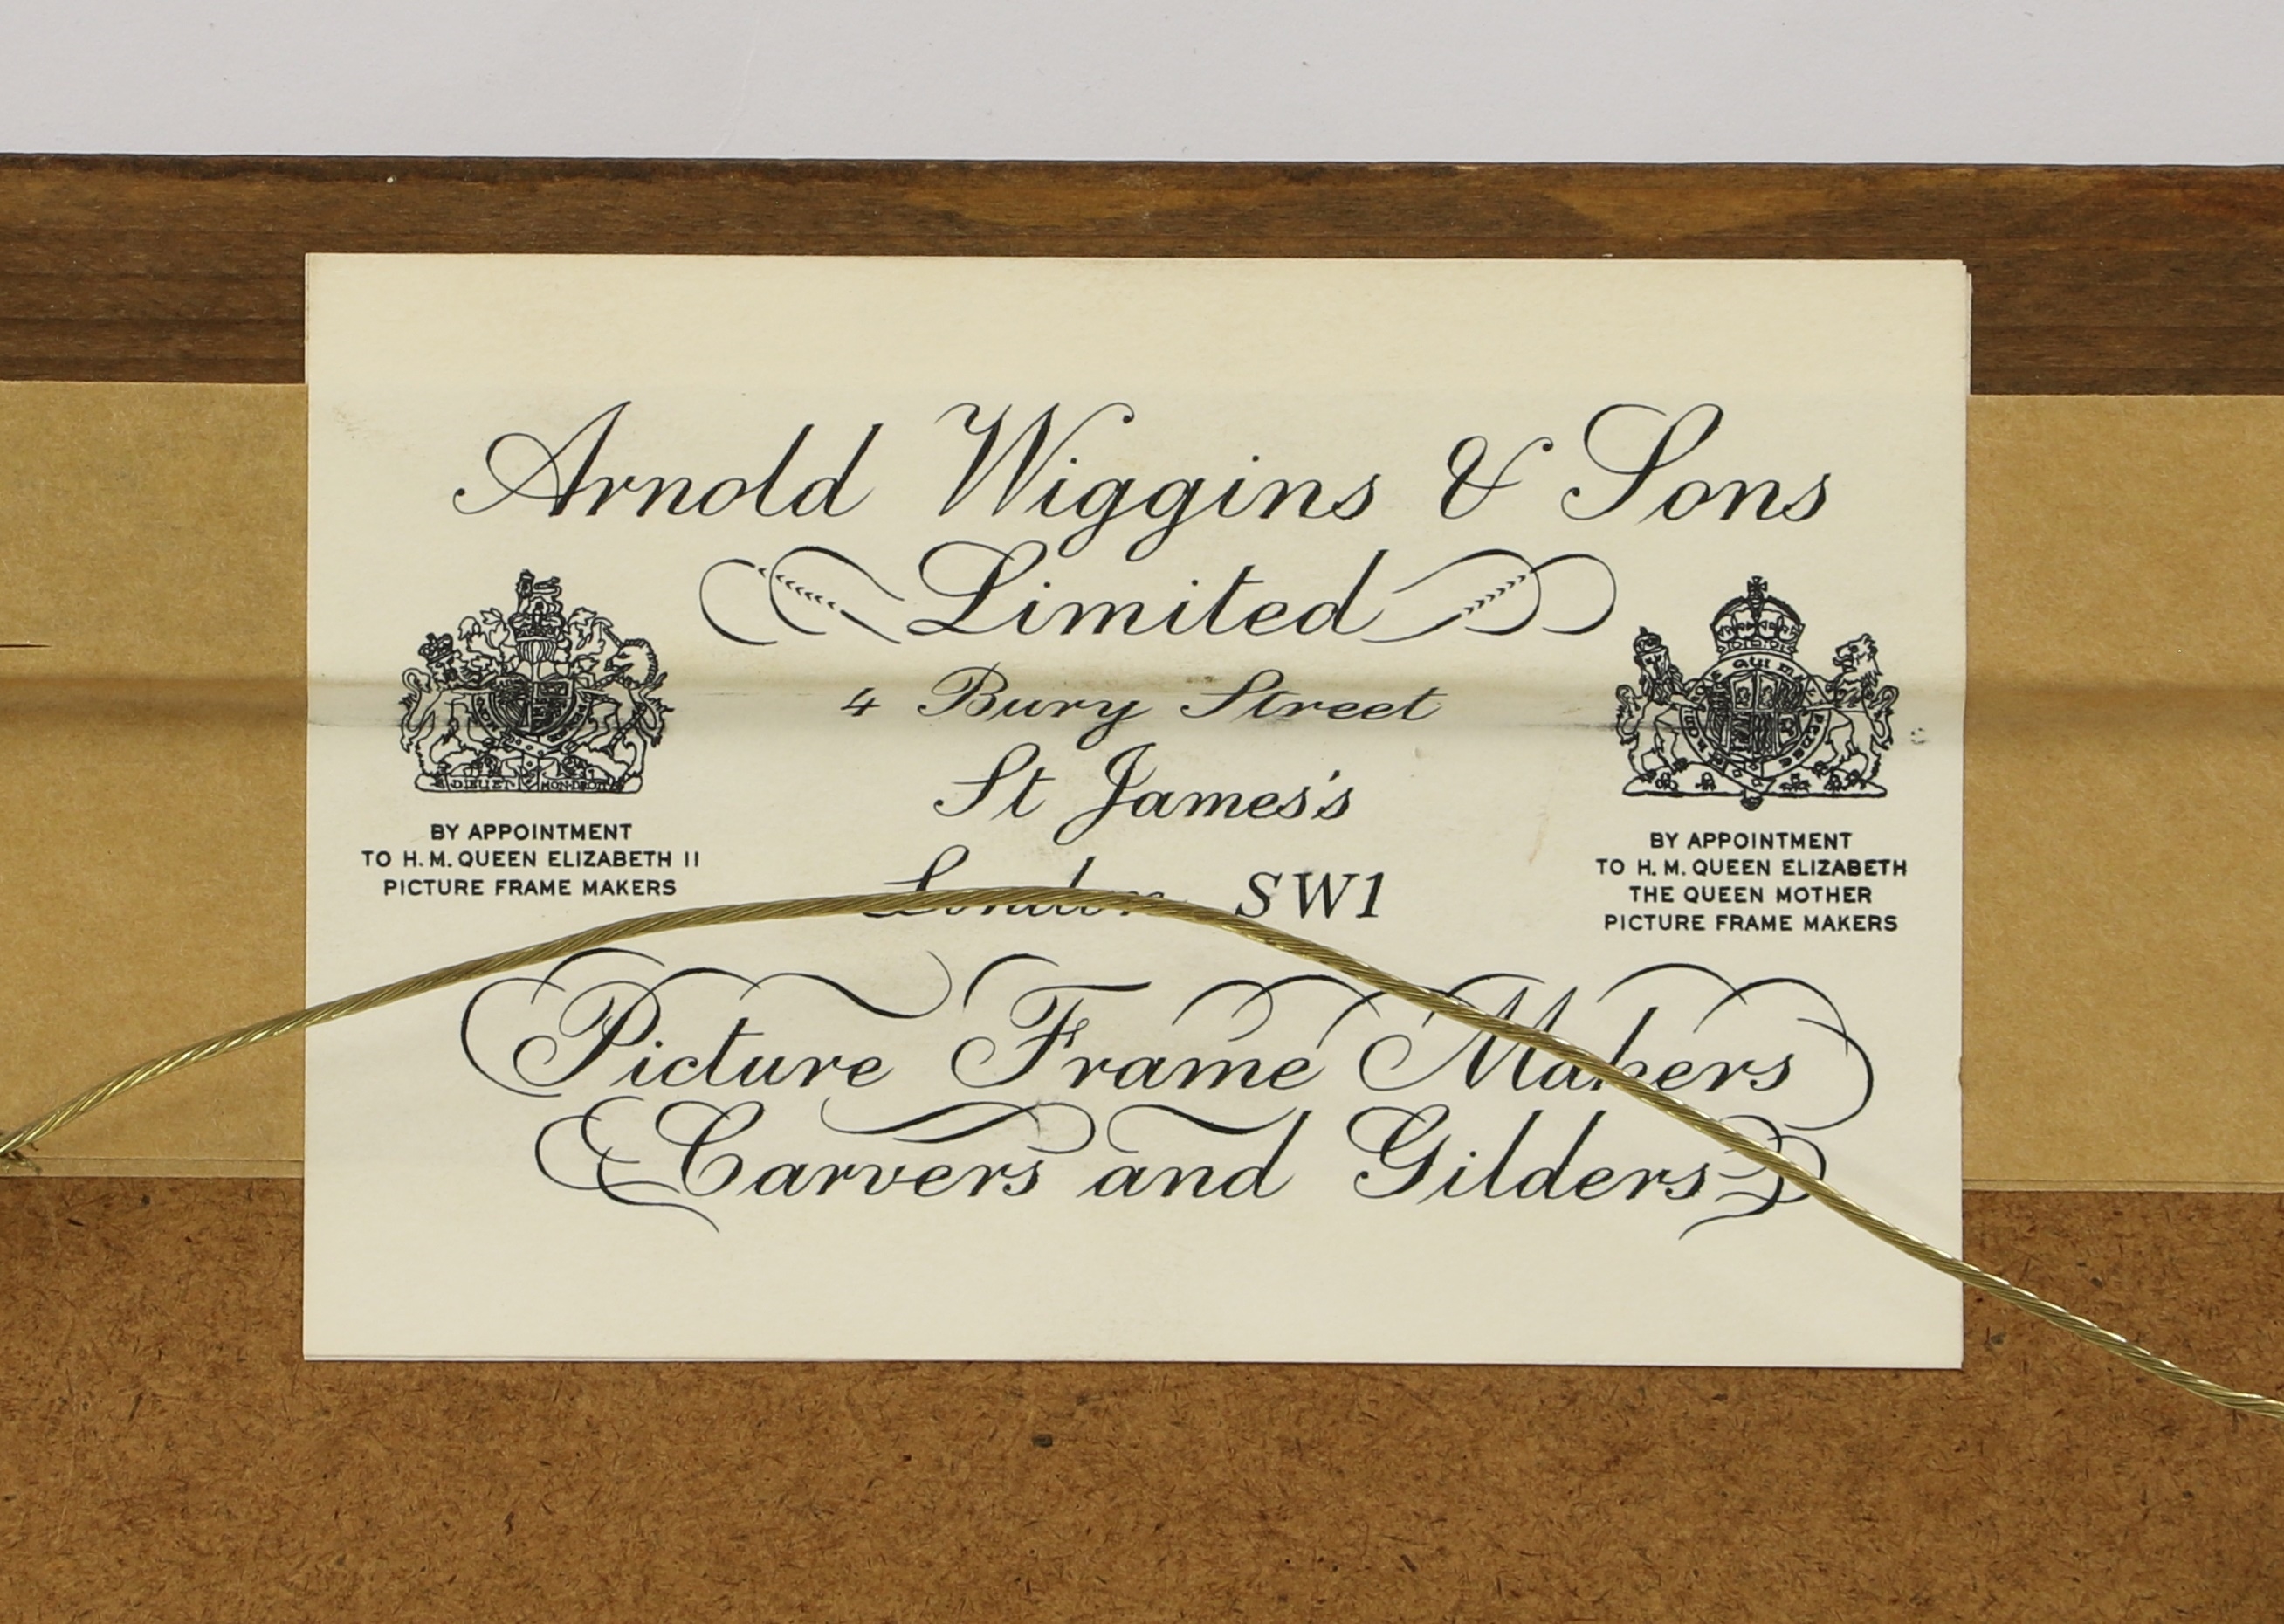 Arnold Wiggins & Sons
Limited
4 Bury Street
St James's
London SW1
DIEU ET MON DROIT
BY APPOINTMENT
TO H.M. QUEEN ELIZABETH II
PICTURE FRAME MAKERS
BY APPOINTMENT
TO H. M. QUEEN ELIZABETH
THE QUEEN MOTHER
PICTURE FRAME MAKERS
Picture Frame Makers
Carvers and Gilders